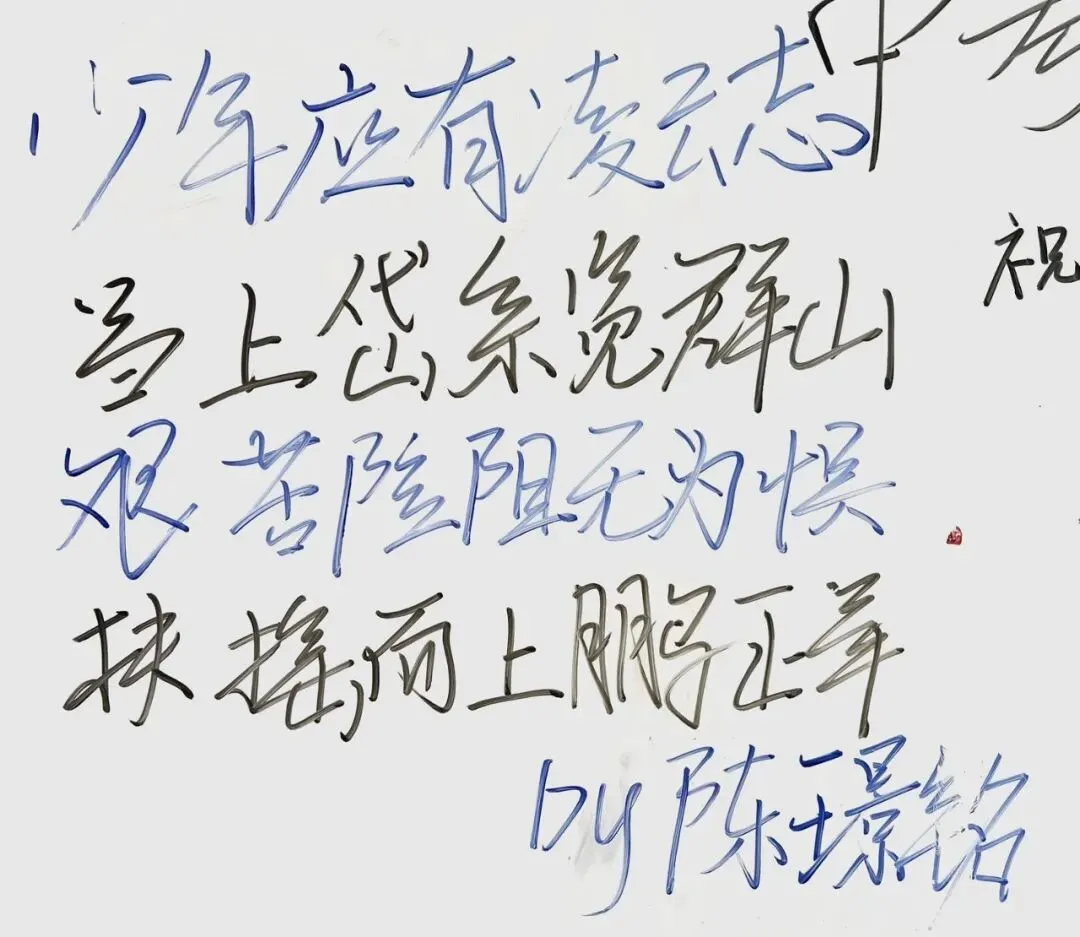 少年应有凌云志
登上岱宗览群山
艰苦险阻无为惧
扶摇而上鹏正举
by 陈璟铭
中考
祝